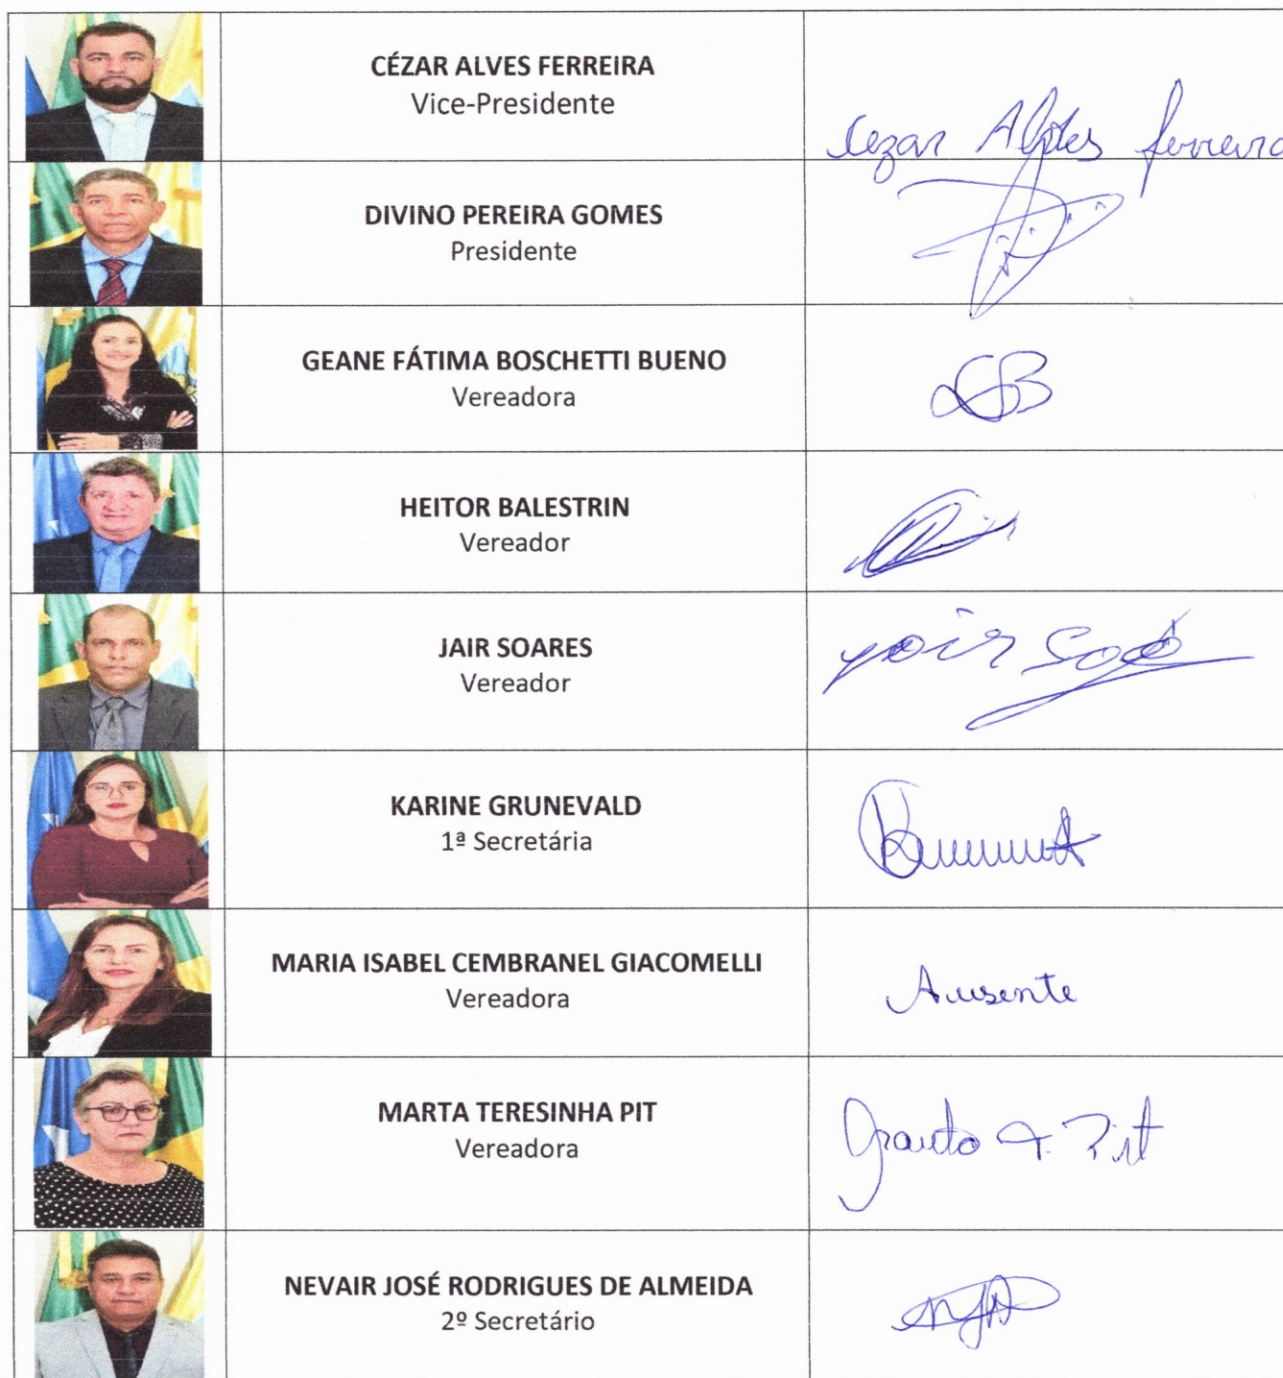 CÉZAR ALVES FERREIRA
Vice-Presidente
Cezar Alves ferreira
DIVINO PEREIRA GOMES
Presidente
GEANE FÁTIMA BOSCHETTI BUENO
Vereadora
GB
HEITOR BALESTRIN
Vereador
JAIR SOARES
Vereador
KARINE GRUNEVALD
1ª Secretária
MARIA ISABEL CEMBRANEL GIACOMELLI
Vereadora
Ausente
MARTA TERESINHA PIT
Vereadora
T. Pit
NEVAIR JOSÉ RODRIGUES DE ALMEIDA
2º Secretário